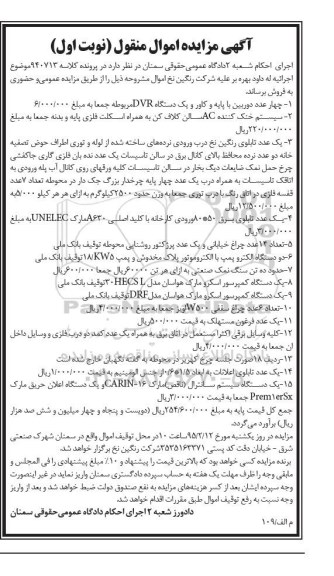 آگهی مزایده اموال منقول (نوبت اول)
اجرای احکام شعبه ۲دادگاه عمومی‌حقوقی سمنان در نظر دارد در پرونده کلاسه ۹۴۰۷۱۳موضوع
اجرائیه له داود بهره بر علیه شرکت رنگین نخ اموال مشروحه ذیل را از طریق مزایده عمومی‌و حضوری
به فروش برساند.
۱-چهار عدد دوربین با پایه و کاور و یک دستگاه DVRمربوطه جمعا به مبلغ ۶/۰۰۰/۰۰۰
۲-سیستم خنک کننده ACسالن کلاف کن به همراه اسکلت فلزی پایه و بدنه جمعا به مبلغ
۲۲۰/۰۰۰/۰۰۰ریال
۳-یک عدد تابلوی رنگین نخ درب ورودی نرده‌های ساخته شده از لوله و توری اطراف حوض تصفیه
خانه دو عدد نرده محافظ بالای کانال برق در سالن تاسیسات یک عدد نده بان فلزی گاری جاکفشی
چرخ حمل نمک ضایعات دیگ بخار در سالن تاسیسات کلیه ورقهای روی کانال آب پله ورودی به
اتاقک تاسیسات به همراه درب یک عدد چهار پایه چرخدار بزرگ جک دار در محوطه تعداد ۷عدد
قفسه فلزی در اتاق رنگ با درب توری جمعا‌به وزن حدود ۲۵۰۰کیلوگرم به ازای هر کیلو ۵/۰۰۰به
مبلغ ۱۲/۵۰۰/۰۰۰ریال
مارک UNELECبه مبلغ
۳/۰۰۰/۰۰۰ریال
۵-تعداد ۱۴عدد چراغ خیابانی و یک عدد پرژکتور روشنایی محوطه توقیف بانک ملی
۶-دو دستگاه الکترو پمپ با الکتروموتور پلاک مخدوش و پمپ ۱۸/KW۵توقیف بانک ملی
۷-حدود ده تن سنگ نمک صنعتی به ازای هر تن ۶۰۰۰۰ریال جمعا ۶۰۰/۰۰۰ریال
۸-یک دستگاه کمپرسور اسکرو مارک هواسان مدل HECS L۳۰توقیف بانک ملی
۹-یک دستگاه کمپرسور اسکرو مارک هواسان مدلDRFتوقیف بانک ملی
۱۱-یک عدد فرغون مستهلک به قیمت ۵۰۰/۰۰۰ریال
۱۲-کلیه وسایل برقی اکثرا مستعمل در اتاق برق به همراه یک عدد کمد دو درب فلزی و وسایل داخل
ان جمعا به قیمت ۴/۰۰۰/۰۰۰ریال
۱۳-ردیف ۱۸صورت جلسه چرخ کهریز در محوطه به گفته نگهبان خارج شده است
جمع کل قیمت پایه به مبلغ ۲۵۴/۶۰۰/۰۰۰ریال (دویست و پنجاه و چهار میلیون و شش صد هزار
ریال) برآورد می‌گردد.
مزایده در روز یکشنبه مورخ ۹۵/۲/۱۲ساعت ۱۰در محل توقیف اموال واقع در سمنان شهرک صنعتی
شرق - خیابان دقت کد پستی ۳۵۳۵۱۶۳۳۷۱شرکت رنگین نخ برگزار خواهد شد.
برنده مزایده کسی خواهد بود که بالاترین قیمت را پیشنهاد و ۱۰٪ مبلغ پیشنهادی را فی المجلس و
مابقی وجه را ظرف مهلت یک هفته به حساب سپرده دادگستری سمنان واریز نماید در غیر اینصورت
وجه سپرده ایشان بعد از کسر هزینه‌های مزایده به نفع صندوق دولت ضبط خواهد شد و بعد از واریز
وجه نسبت به رفع توقیف اموال طبق مقررات اقدام خواهد شد.
دادورز شعبه ۲ اجرای احکام دادگاه عمومی‌حقوقی سمنان
م الف/۱۰۹